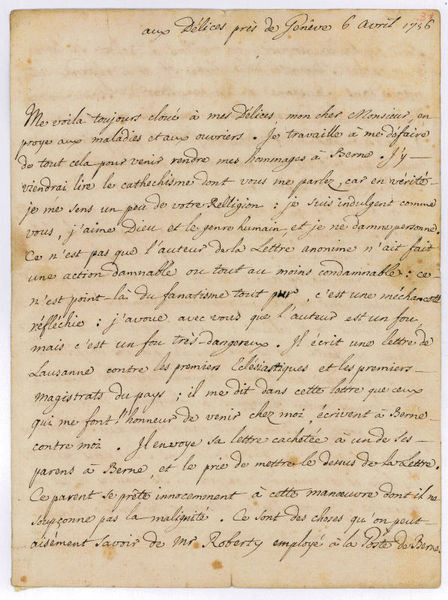 aux Délices près de Genêve 6 avril 1756
Me voilà toujours cloué à mes Délices, mon cher Monsieur, en
proye aux maladies et aux ouvriers. Je travaille à me défaire
de tout cela pour venir rendre mes hommages à Berne. J'y
viendrai lire le cathechisme dont vous me parlez, car en vérité
je me sens un peu de votre Relligion : je suis indulgent comme
vous, j'aime Dieu et le genre humain, et je ne damne personne.
Ce n'est pas que l'auteur de la Lettre anonime n'ait fait
une action damnable ou tout au moins condamnable : ce
n'est point là du fanatisme tout pur, c'est une méchanceté
réfléchie : j'avoue avec vous que l'auteur est un fou
mais c'est un fou très-dangereux. Il écrit une lettre de
Lausanne contre les premiers Eclésiastiques et les premiers
magistrats du pays ; il me dit dans cette lettre que ceux
qui me font l'honneur de venir chez moi écrivent à Berne
contre moi. Il envoye sa lettre cachetée à un de ses
parens à Berne, et le prie de mettre le dessus de la Lettre.
Ce parent se prête innocemment à cette manœuvre dont il ne
soupçonne pas la malignité. Ce sont des choses qu'on peut
aisément savoir de Mr Roberty employé à la Poste de Berne.